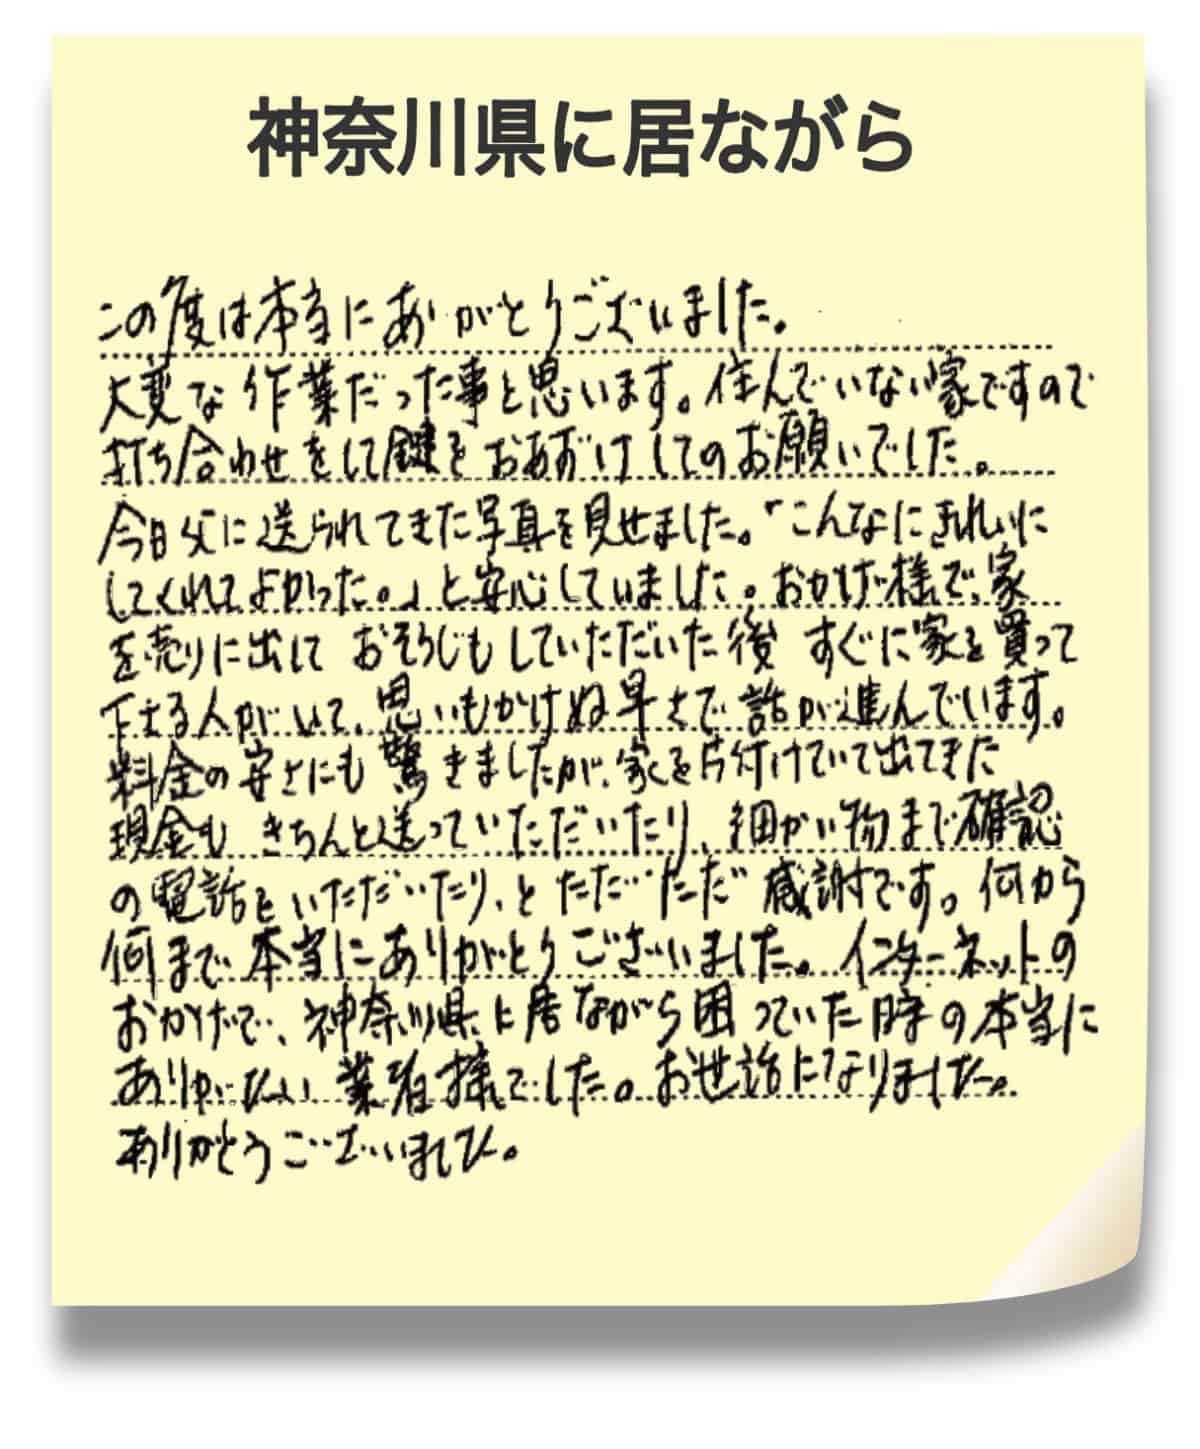 神奈川県に居ながら
この度は本当にありがとうございました。
大変な作業だった事と思います。住んでいない家ですので
打ち合わせをして鍵をおあずけしてのお願いでした。
今日父に送られてきた写真を見せました。「こんなにきれいに
してくれてよかった。」と安心していました。おかげ様で、家
を売りに出して おそうじもしていただいた後 すぐに家を買って
下さる人がいて、思いもかけぬ早さで話が進んでいます。
料金の安さにも驚きましたが、家を片付けていて出てきた
現金も きちんと送っていただいたり、細かい物まで確認
の電話をいただいたり、と ただただ 感謝です。何から
何まで本当にありがとうございました。インターネットの
おかげで、神奈川県に居ながら困っていた時の本当に
ありがたい 業者様でした。お世話になりました。
ありがとうございました。